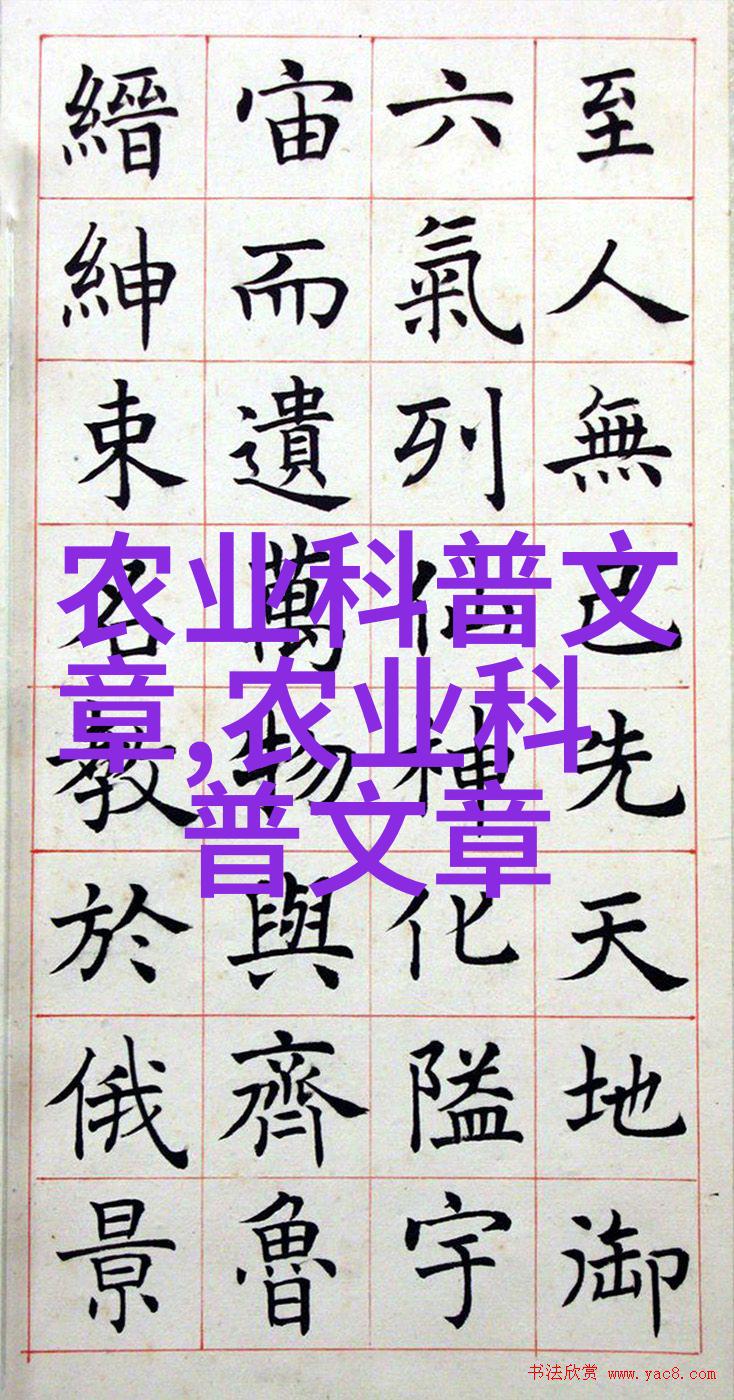 至人無己先天地御
六氣列仙神化隘宇
宙而遺萬物與齊魯
縉紳束名教於俄景
农业科普文
章,农业科
普文章
书法欣赏 www.yac8.com